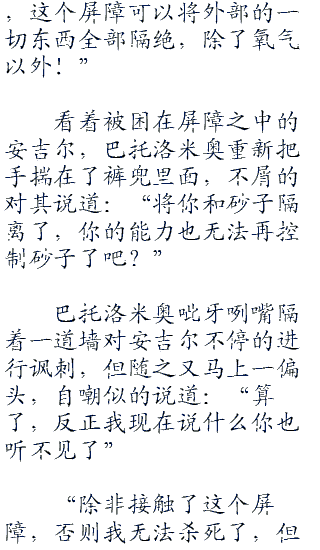 ，这个屏障可以将外部的一
切东西全部隔绝，除了氧气
以外！”
看着被困在屏障之中的
安吉尔，巴托洛米奥重新把
手揣在了裤兜里面，不屑的
对其说道：“将你和砂子隔
离了，你的能力也无法再控
制砂子了吧？”
巴托洛米奥呲牙咧嘴隔
着一道墙对安吉尔不停的进
行讽刺，但随之又马上一偏
头，自嘲似的说道：“算
了，反正我现在说什么你也
听不见了”
“除非接触了这个屏
障，否则我无法杀死了，但